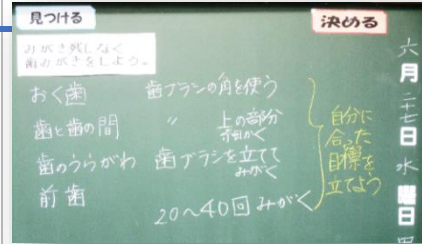 見つける
決める
みがき残しなく
歯みがきをしよう。
おく歯 歯ブラシの角を使う
歯と歯の間 〃 上の部分
細かく
歯のうらがわ 歯ブラシを立てて
みがく
前歯
20〜40回 みがく
自分に
合った
目標を
立てよう
六月二十七日 水曜日